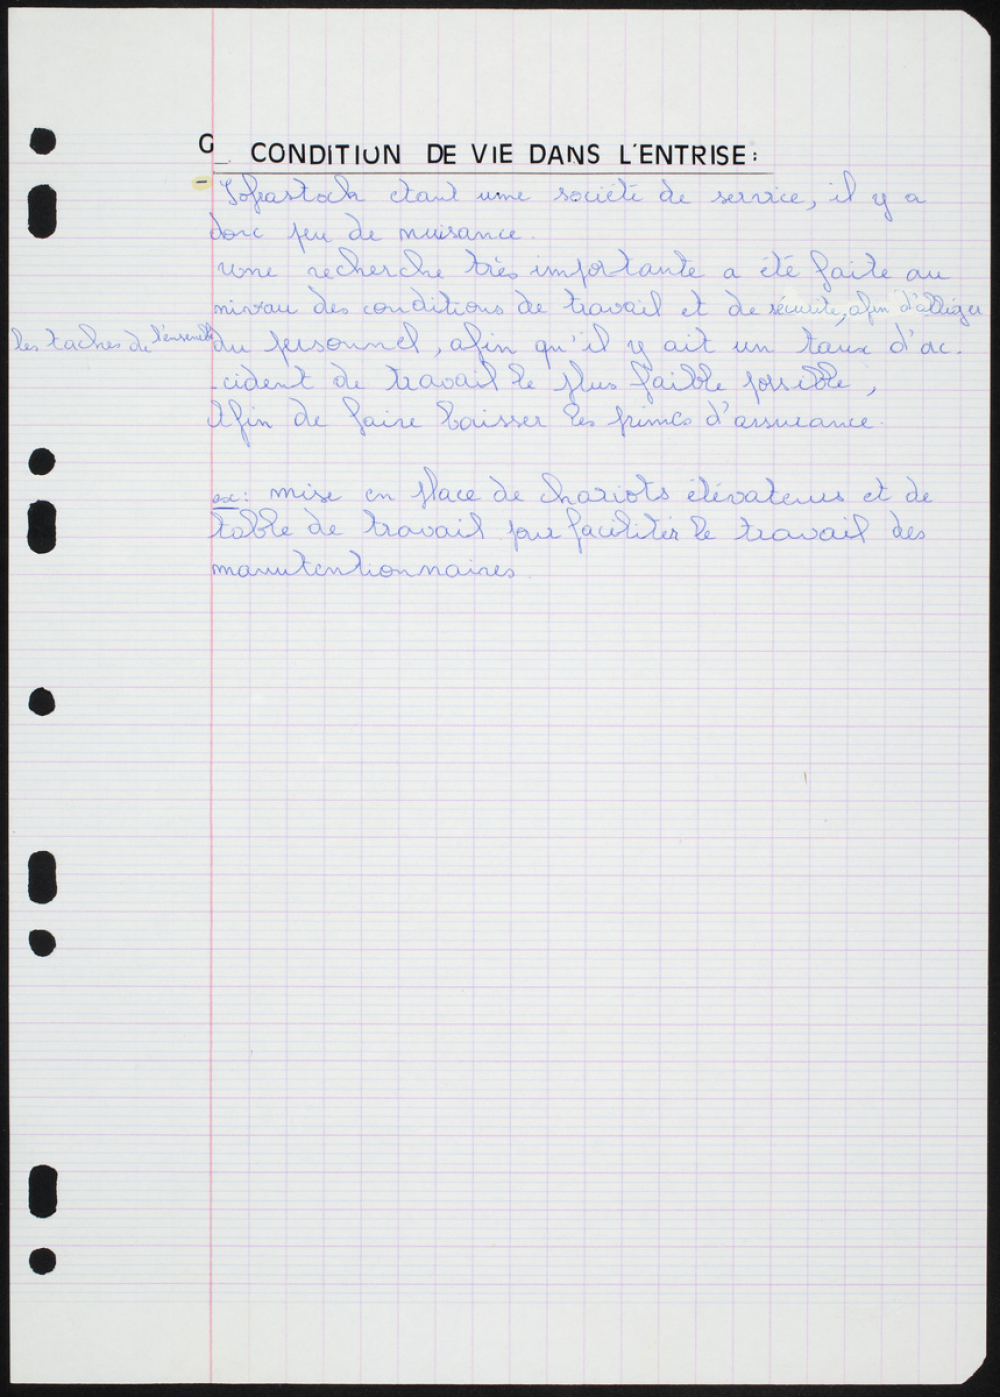 G_ CONDITION DE VIE DANS L'ENTRISE:
- Sofrastock etant une société de service, il y a
donc peu de nuisance.
Une recherche très importante a été faite au
niveau des conditions de travail et de sécurité, afin d'alléger
les taches de l'ensemble du personnel, afin qu'il y ait un taux d'ac-
-cident de travail le plus faible possible,
Afin de faire baisser les primes d'assurance.
ex: mise en place de chariots élévateurs et de
table de travail pour faciliter le travail des
manutentionnaires.